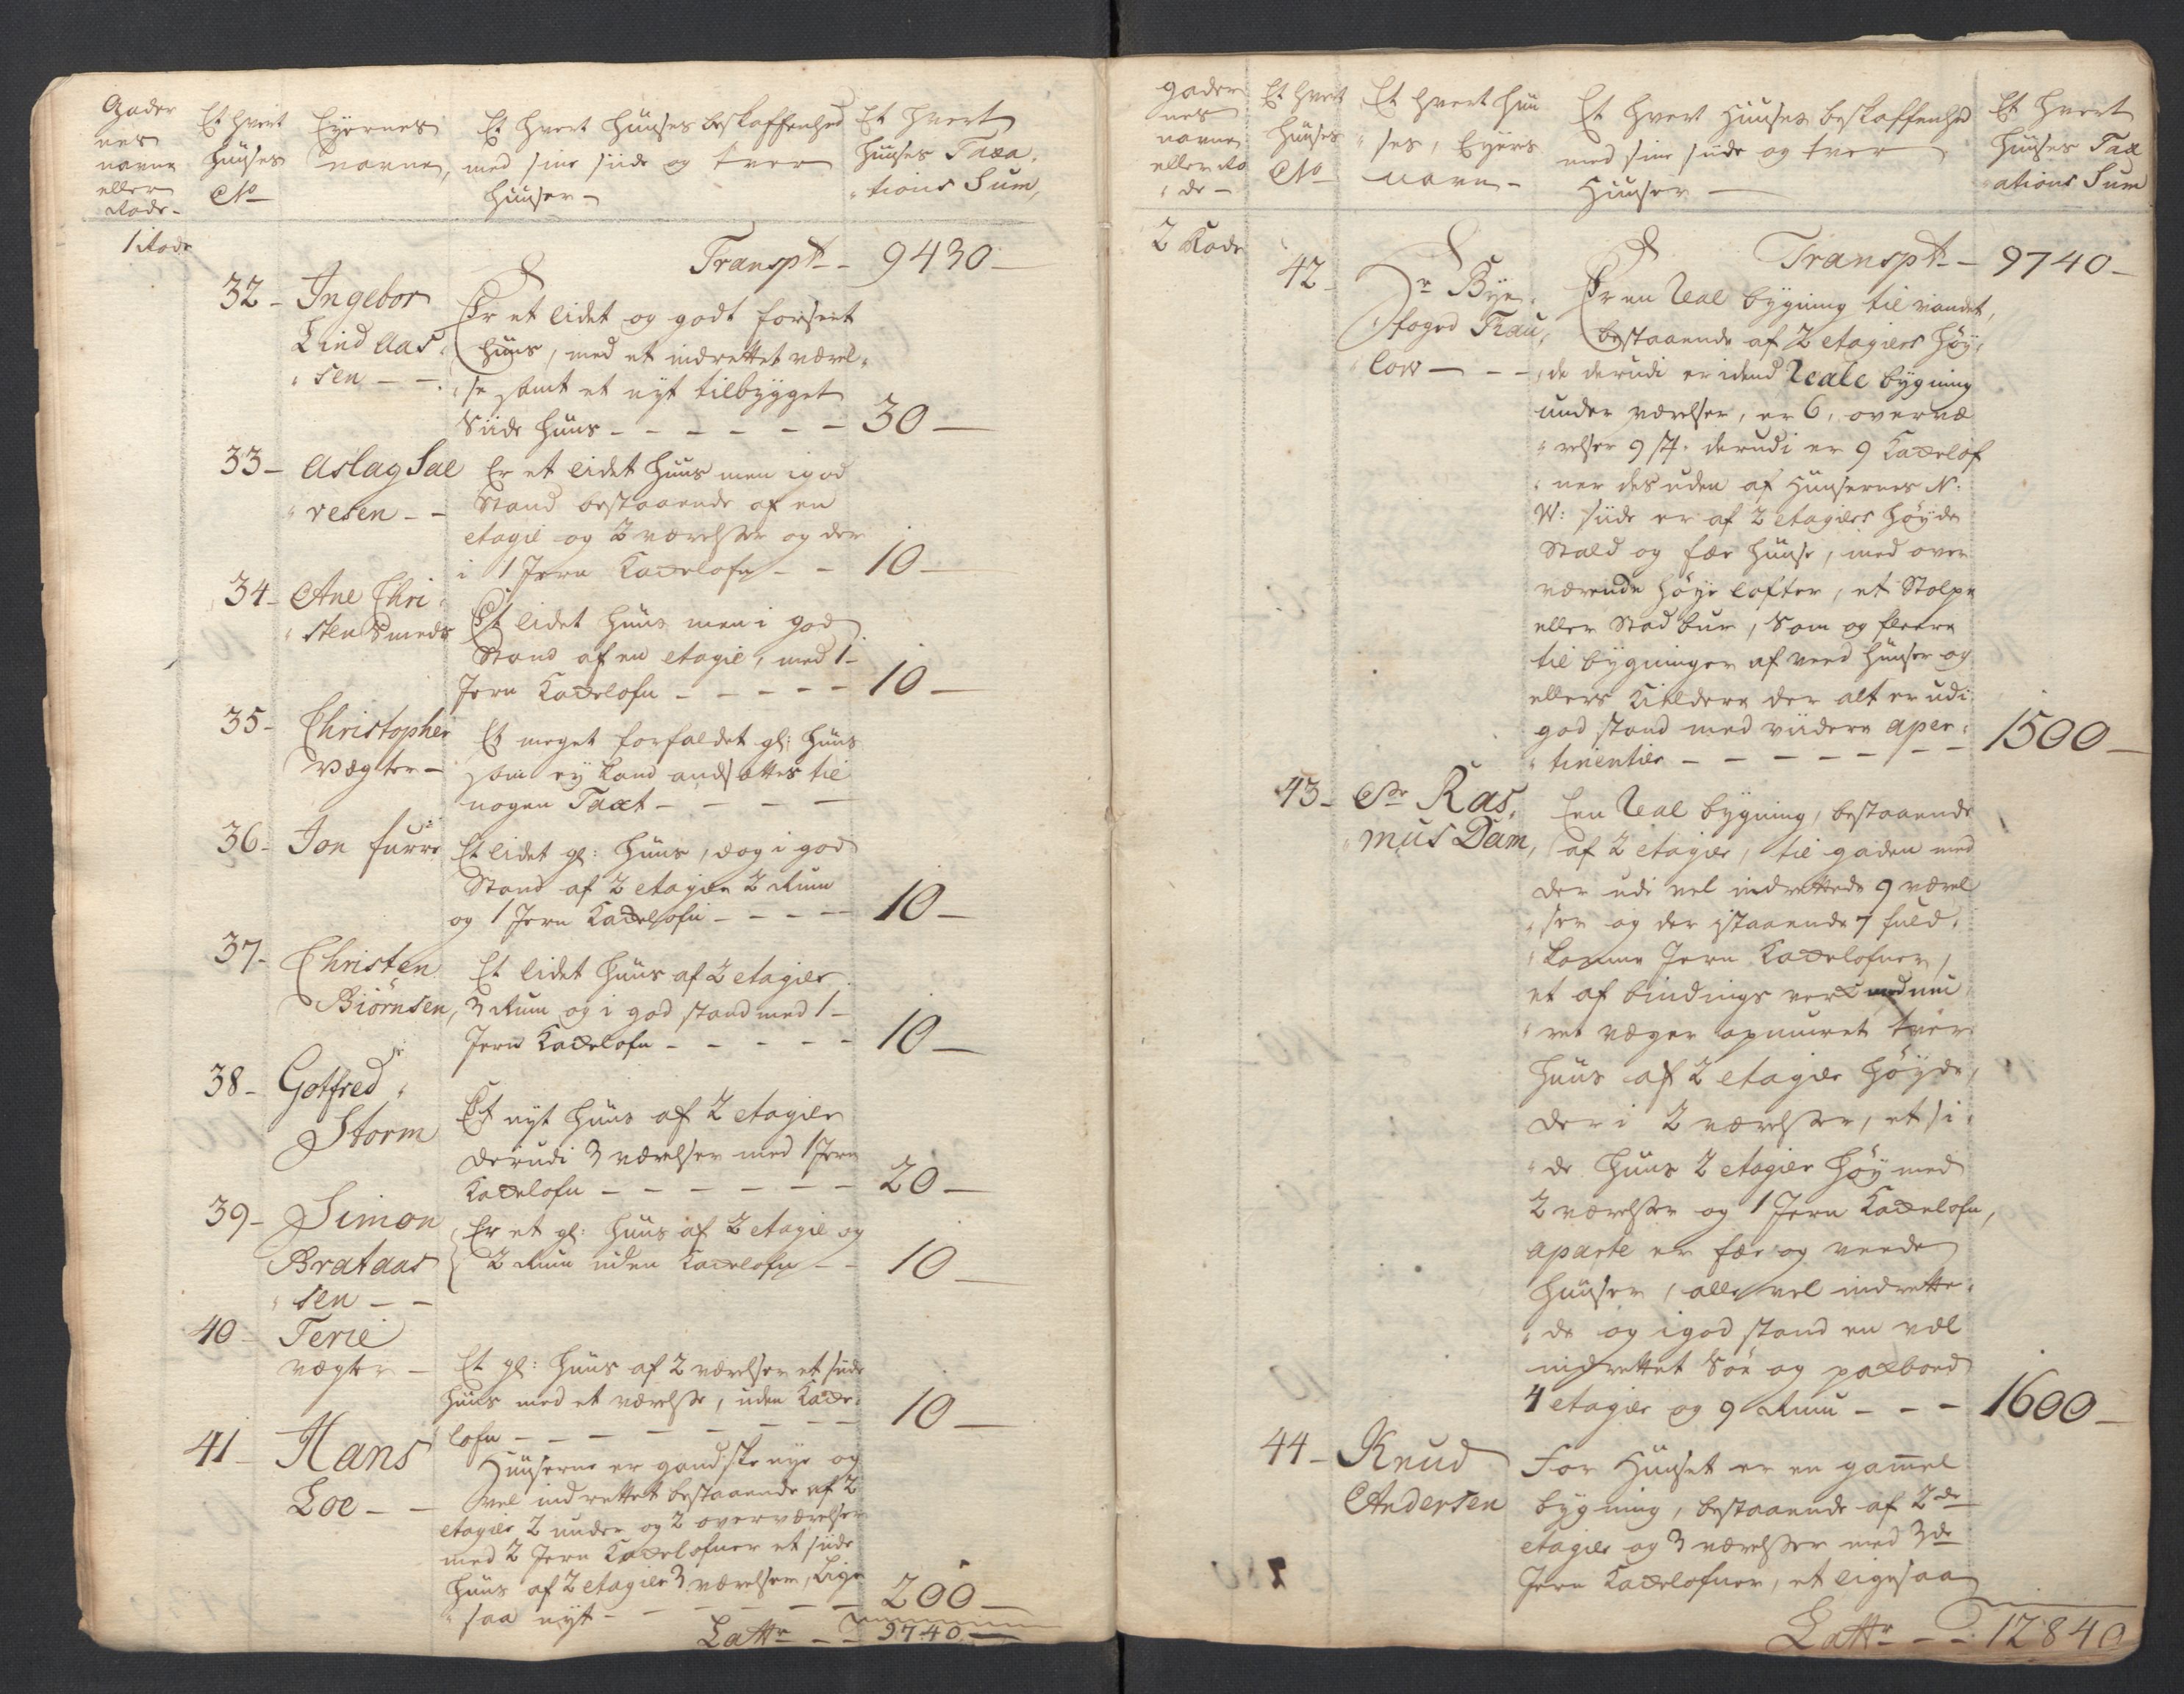 Gader
nes
navne
eller
Rode-
Et hvert
Huuses
No
Eyernes
navne,
Et hvert Huuses beskaffenhed
med sine siide og tver
Huuser-
Et hvert
Huuses Taxa,
tions Sum,
1 Rode
Transpt-- 9430-
32- Ingebor
Lind Aas,
sen - -
Er et lidet og godt forseet
Huus, med et indrettet værel,
se samt et nyt tilbygget
Siide Huus - - - - - - 30-
33- Aslag Sal
vesen - -
Er et lidet Huus men i god
Stand bestaaende af en
etagie og 2 værelsser og der
i 1 Jern Kackelofn - - 10-
34- Ane Chri,
sten Smeds
Et lidet Huus men i god
Stand af en etagie, med 1-
Jern Kackelofn - - - - - 10-
35- Christopher
Vægter-
Et meget forfaldet gl: Huus
som ey kand andsættes til
nogen Taxt - - - -
36- Jon furre
Et lidet gl: Huus, dog i god
Stand af 2 etagier 2 Rum
og 1 Jern Kackelofn - - - - 10-
37- Christen
Biørnsen,
Et lidet Huus af 2 etagier
3 Rum og i god stand med 1-
Jern Kackelofn - - - - - 10-
38- Gotfred
Storm
Et nyt Huus af 2 etagier
derudi 3 værelser med 1 Jern
Kackelofn - - - - - - 20-
39- Simon
Brataas
sen - -
Er et gl: Huus af 2 etagie og
2 Rum uden Kackelofn - - 10-
40- Terie
vægter -
Et gl: Huus af 2 værelser et siide
Huus med et værelsse, uden Kacke,
lofn - - - - - - - 10-
41- Hans
Loe - -
Huuserne er gandske nye og
vel indrettet bestaaende af 2
etagier 2 under og 2 overværelser
med 2 Jern Kackelofner et siide
Huus af 2 etagier 3 værelser, Lige
saa nyt - - - - - - 200-
Lattr - - 9740-
gader
nes
navne
eller Ro
de -
Et hvert
Huuses
No
Et hvert Huu
ses, Eyers
navn -
Et hvert Huuses beskaffenhed
med sine siide og tver
Huuser -
Et hvert
Huuses Tax
ations Sum
2 Rode
Transpt-- 9740-
42- Sr Bye,
foged Trau,
low - - -
Er en Real bygning til vandet,
bestaaende af 2 etagiers Høy,
de derudi er idend Reale bygning
under værelser, er 6, overvæ
relser 9 st. derudi er 9 Kackelof
ner des uden af Huusernes N:
W: siide er af 2 etagiers Høyde
Stald og fæe Huuse, med over
værende Høye lofter, et Stolpe
eller Stadbur, Som og fleere
til bygninger af veed Huuser og
ellers Kieldere der alt er udi
god stand med viidere aper,
tinentier - - - - - - - 1500-
43- Sr Ras,
mus Dam,
En Real bygning, bestaaende
af 2 etagier, til gaden med
der udi vel indrettede 9 værel
ser og der istaaende 7 fuld,
komne Jern Kackelofner,
et af bindings verck med mu
ret væger opmuret tver
Huus af 2 etagier Høyde,
der i 2 værelsser, et si,
de Huus 2 etagier Høy med
2 værelsser og 1 Jern Kackelofn,
aparte er fæe og veede
Huuser, alle vel indrette,
de og i god stand en vel
indrettet Søe og packboed
4 etagier og 9 Rum - - - 1600-
44- Knud
Andersen
For Huuset er en gammel
bygning, bestaaende af 2de
etagier og 3 værelsser med 3de
Jern Kackelofner, et ligesaa
Lattr - - 12840